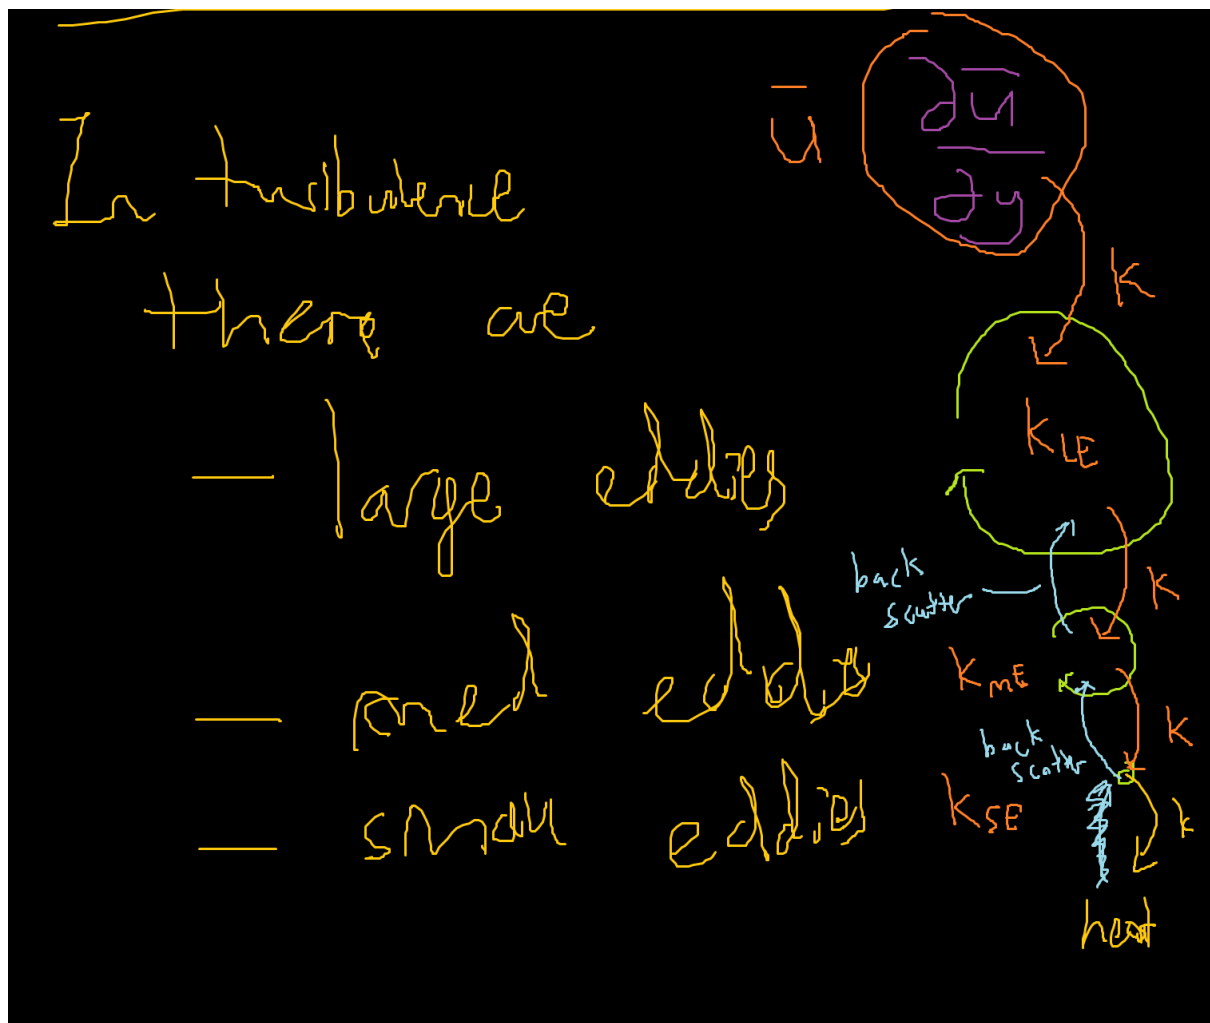 In turbulence
there are
— large eddies
— med eddies
— small eddies
ū
∂ū
∂y
K
K_LE
back
scatter
K
K_ME
K
back
scatter
K_SE
k
heat